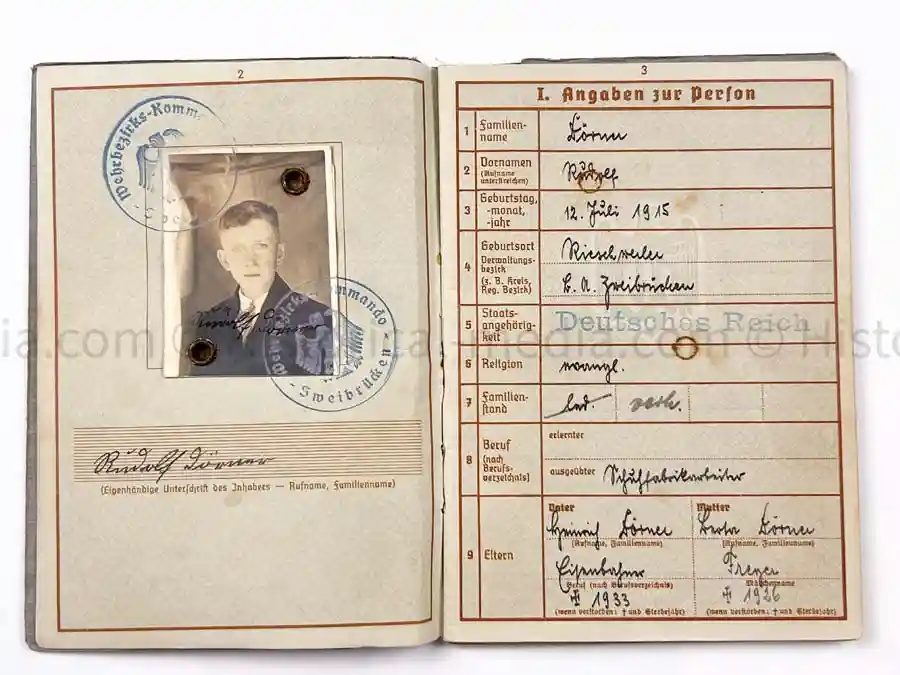 2
Wehrbezirks-Komm
Rudolf Dörner
Wehrbezirks-Kommando
- Zweibrücken -
Rudolf Dörner
(Eigenhändige Unterschrift des Inhabers — Rufname, Familienname)
3
I. Angaben zur Person
1 Familien-
name
Dörner
2 Vornamen
(Rufname
unterstreichen)
Rudolf
3 Geburtstag,
-monat,
-jahr
12. Juli 1915
4 Geburtsort
Verwaltungs-
bezirk
(z. B. Kreis,
Reg. Bezirk)
Rieschweiler
B. A. Zweibrücken
5 Staats-
angehörig-
keit
Deutsches Reich
6 Religion
evangl.
7 Familien-
stand
led. verh.
8 Beruf
(nach
Berufs-
verzeichnis)
erlernter
ausgeübter Schuhfabrikarbeiter
9 Eltern
Vater Mutter
Heinrich Dörner Berta Dörner
(Rufname, Familienname) (Rufname, Familienname)
Eisenbahner
Beruf (nach Berufsverzeichnis) Mädchenname
1933
(wenn verstorben: † und Sterbejahr) (wenn verstorben: † und Sterbejahr)
ia.com © Historical-media.com © Histo